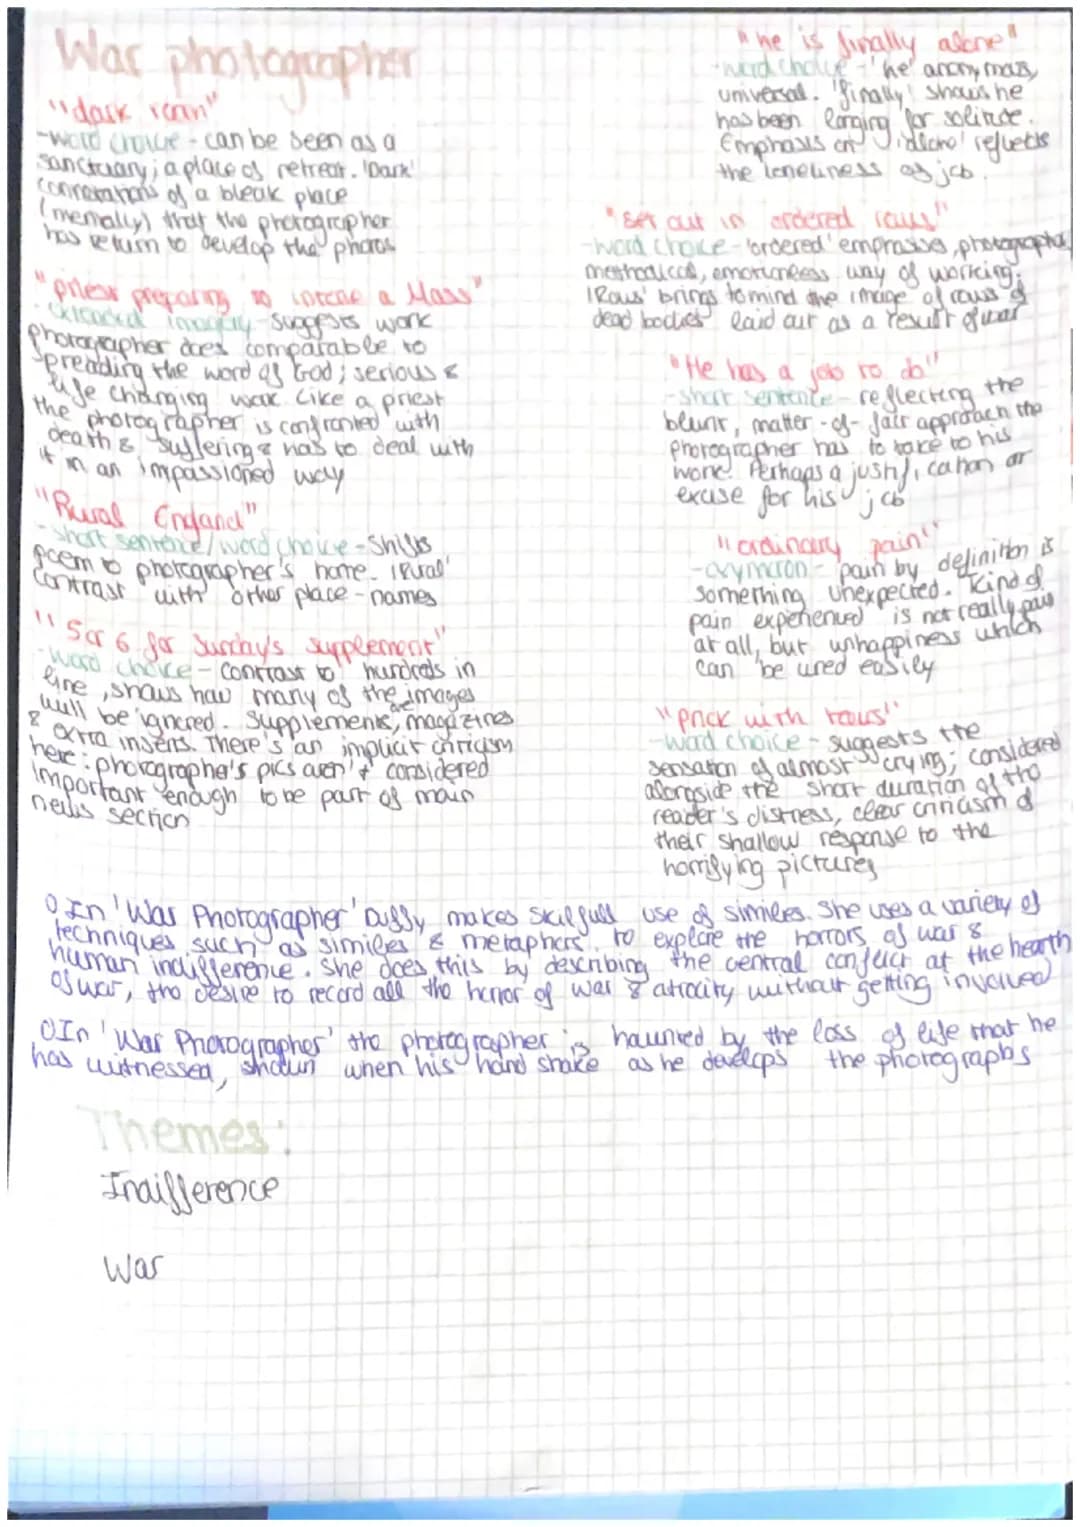 War photographer
"dark room"
-word choice - can be seen as a
sanctuary; a place of retreat. 'Dark'
connotations of a bleak place
(mentally) that the photographer
has return to develop the photos
"priest preparing to intone a Mass"
-extended imagery - suggests work
photographer does comparable to
spreading the word of God; serious &
life changing work. Like a priest
the photographer is confronted with
death & suffering & has to deal with
it in an impassioned way
"Rural England"
-short sentence/word choice - Shifts
poem to photographer's home. 'Rural'
contrast with other place-names
"5 or 6 for Sunday's supplement"
-word choice - contrast to hundreds in
line, shows how many of the images
will be ignored. Supplements, magazines
& extra inserts. There's an implicit criticism
here: photographer's pics aren't considered
important enough to be part of main
news section
"he is finally alone"
-word choice - 'he' anonymous,
universal. 'finally' shows he
has been longing for solitude.
Emphasis on 'alone' reflects
the loneliness of job.
"set out in ordered rows"
-word choice - 'ordered' emphasises photographer
methodical, emotionless way of working.
'Rows' brings to mind the image of rows of
dead bodies laid out as a result of war
"He has a job to do"
-short sentence - reflecting the
blunt, matter-of-fact approach the
photographer has to take to his
work. Perhaps a justification or
excuse for his job
"ordinary pain"
-oxymoron - pain by definition is
something unexpected. Kind of
pain experienced is not really pain
at all, but unhappiness which
can be cured easily
"prick with tears"
-word choice - suggests the
sensation of almost crying; considered
alongside the short duration of the
reader's distress, clear criticism of
their shallow response to the
horrifying pictures
In 'War Photographer' Duffy makes skilfull use of similes. She uses a variety of
techniques such as similes & metaphors to explore the horrors of war &
human indifference. She does this by describing the central conflict at the hearth
of war, the desire to record all the horror of war & atrocity without getting involved
In 'War Photographer' the photographer is haunted by the loss of life that he
has witnessed, shown when his hand shake as he develops the photographs
Themes:
Indifference
War